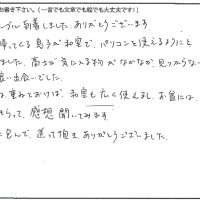 お書き下さい。(一言でも文章でも絵でも大丈夫です!)
ブル到着しました。ありがとうございます
帰ってくる息子が和室で、パソコンを使えるようにと
ました。高さが気に入る物がなかなか見つからな
良い出会いでした。
は重ねておけば、和室も広く使えるし、お盆には、
もらって、感想聞いてみます。
に包んで、送って頂き ありがとうございました。